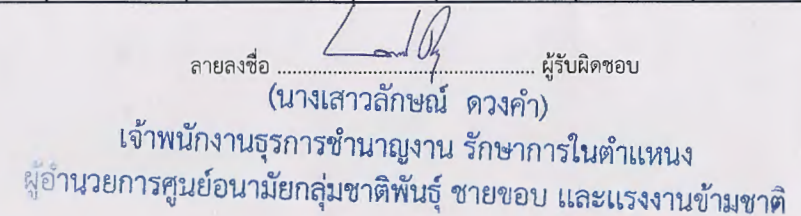 ลายลงชื่อ ........................................................ ผู้รับผิดชอบ
(นางเสาวลักษณ์ ดวงคำ)
เจ้าพนักงานธุรการชำนาญงาน รักษาการในตำแหนง
ผู้อำนวยการศูนย์อนามัยกลุ่มชาติพันธุ์ ชายขอบ และแรงงานข้ามชาติ